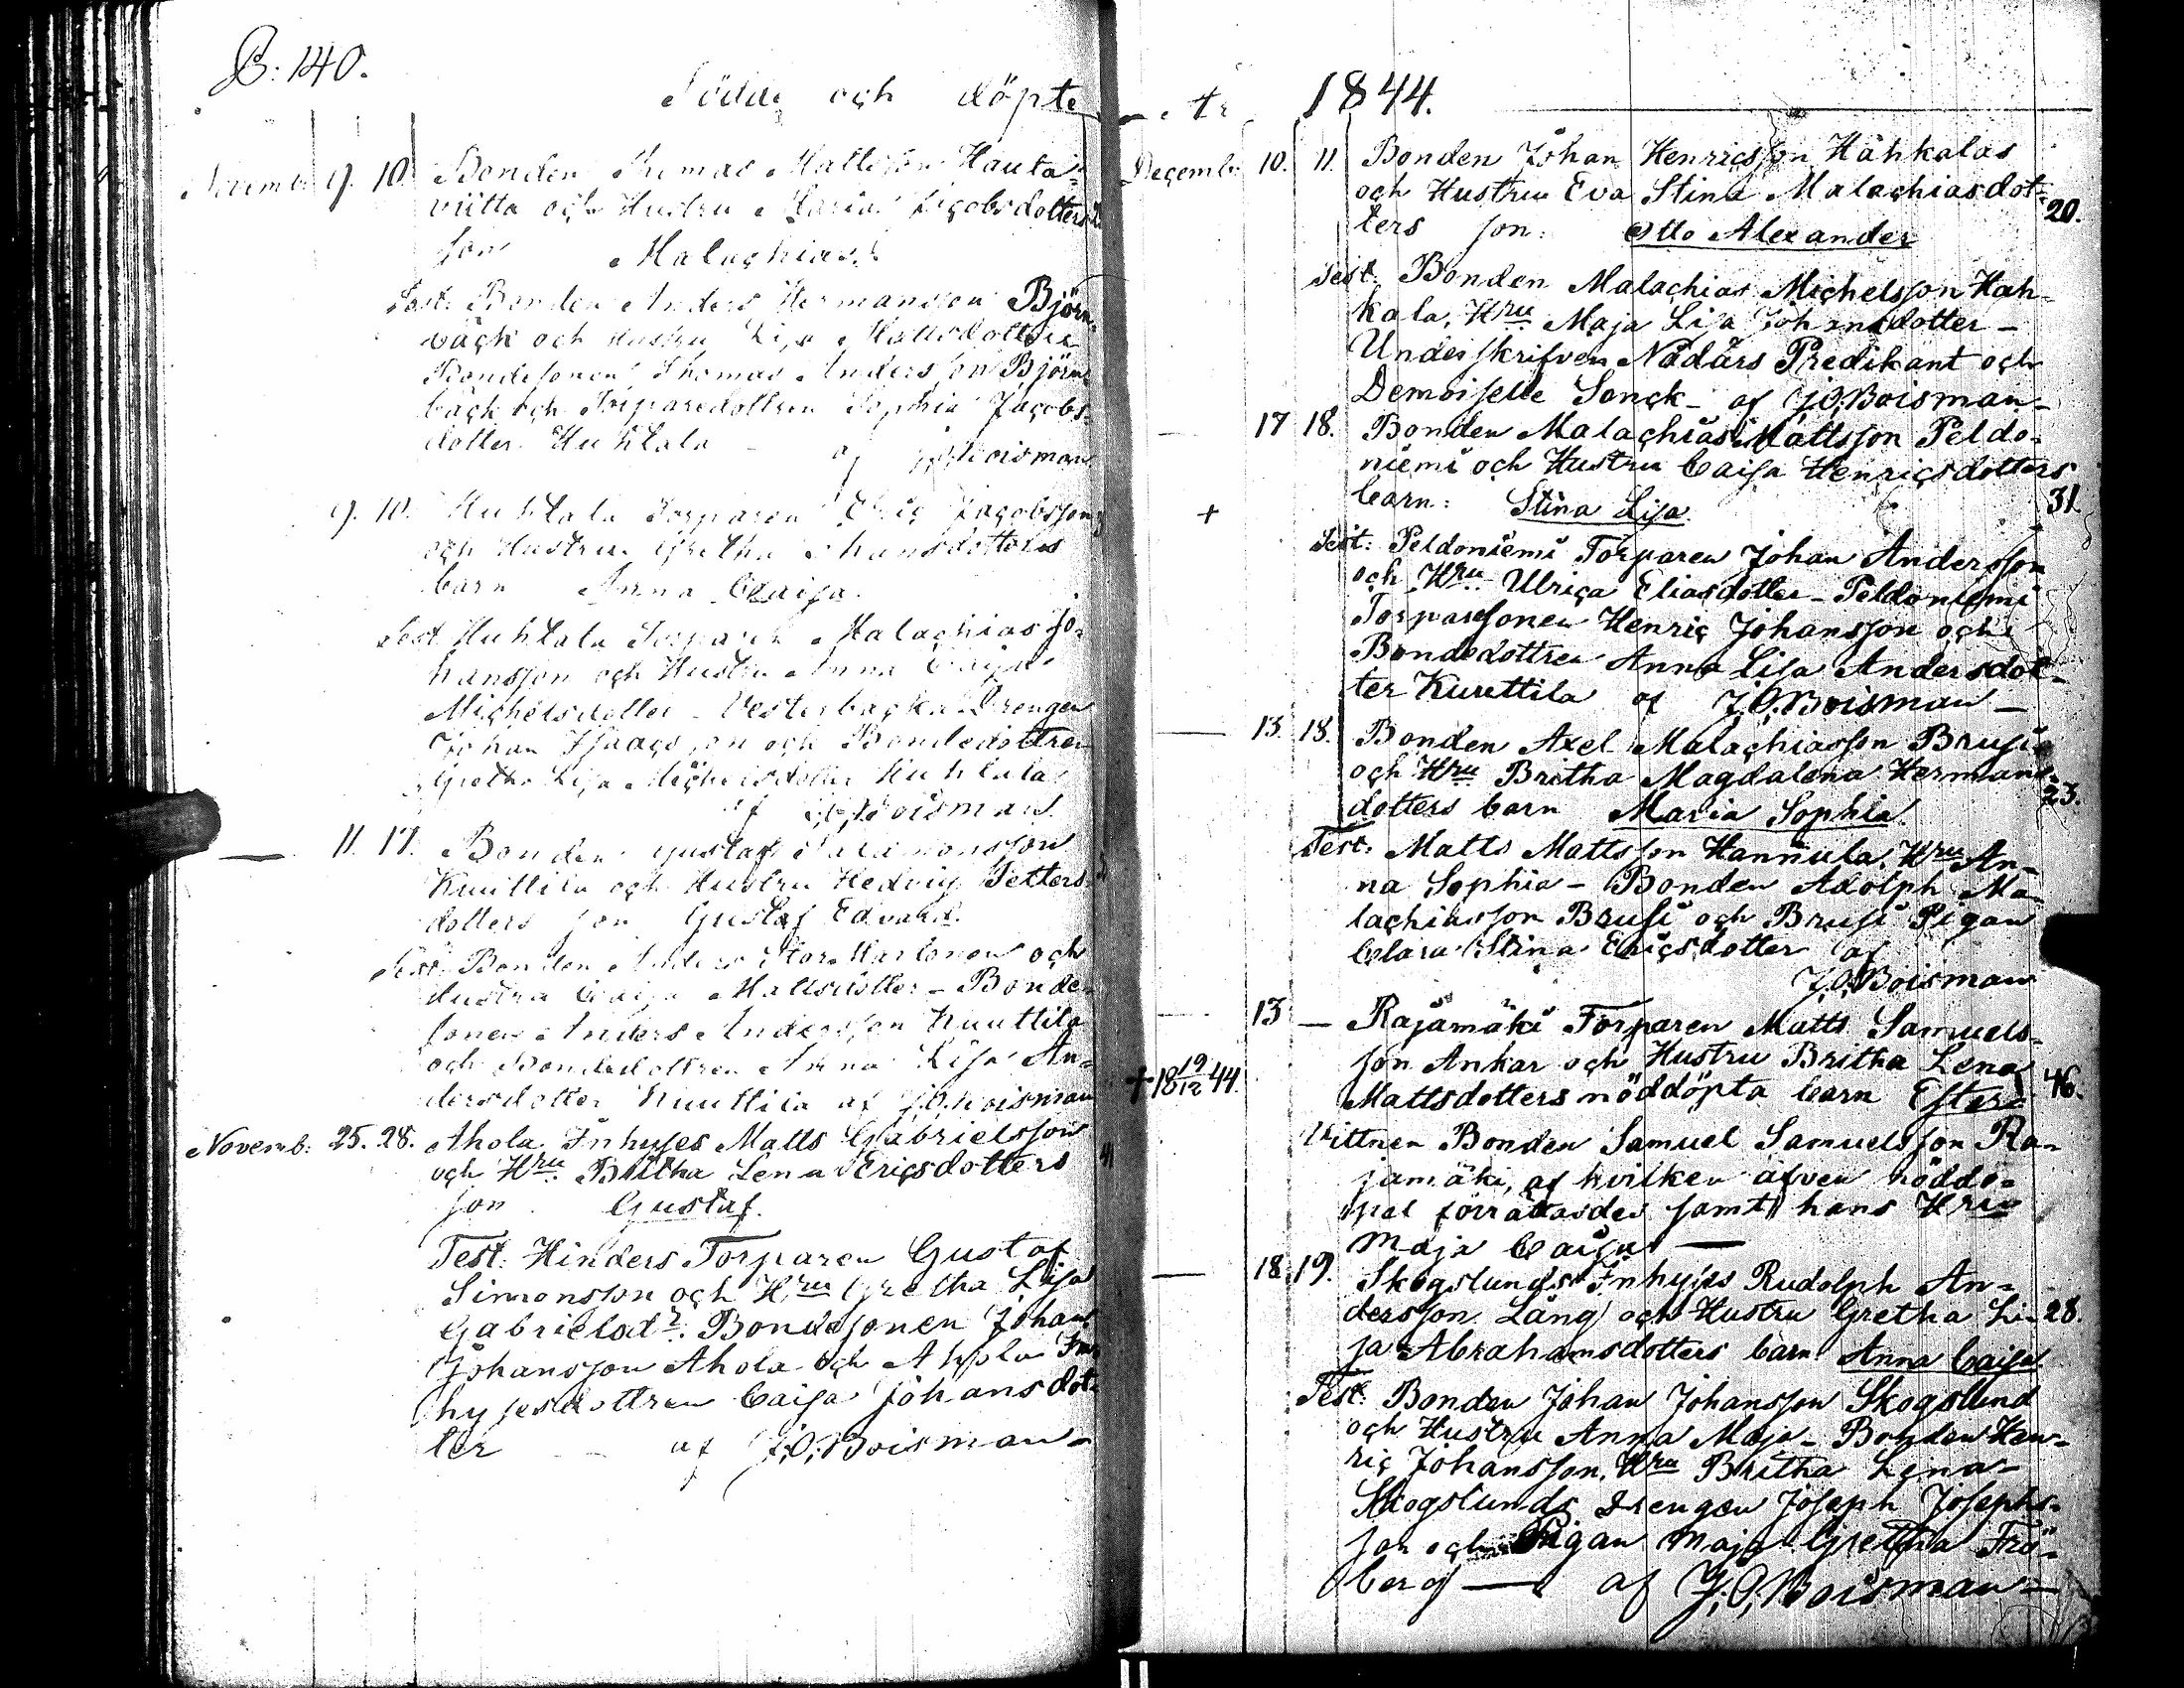 B: 140.
Födde och döpte
Novemb: 9. 10. Bonden Thomas Mattsson Hauta-
viitta och Hustru Maria Jacobsdotters
son Malachias.
Test. Bonden Anders Hermansson Björn-
back och Hustru Lisa Mattsdotter
Bondesonen Thomas Andersson Björn-
back och Torparedottren Sophia Jacobs-
dotter Huhtala - af J.O.Boisman
9. 10. Huhtala Torparen Eric Jacobsson
och Hustru Gretha Johansdotters
barn Anna Caisa.
Test. Huhtala Torparen Malachias Jo-
hansson och Hustru Anna Caisa
Michelsdotter - Vesterbacka Drengen
Johan Isaacsson och Bondedottren
Gretha Lisa Michelsdotter Huhtala
af J.O.Boisman.
11. 17. Bonden Gustaf Salamonsson
Kuuttila och Hustru Hedvig Petters-
dotters son Gustaf Edvard.
Test. Bonden Anders Stor Martonen och
Hustru Caisa Mattsdotter - Bonde-
sonen Anders Andersson Kuuttila
och Bondedottren Anna Lisa An-
dersdotter Kuuttila af J.O.Boisman
Novemb: 25. 28. Ahola Inhyses Matts Gabrielsson
och Hru Britha Lena Ericsdotters
son Gustaf.
Test: Hinders Torparen Gustaf
Simonsson och Hru Gretha Lisa
Gabrielsdr. Bondesonen Johan
Johansson Ahola och Ahola In-
hysesdottren Caisa Johansdot-
ter - af J.O.Boisman -
År 1844.
Decemb: 10. 11. Bonden Johan Henricsson Hähkalas
och Hustru Eva Stina Malachiasdot-
ters son: Otto Alexander 20.
Test: Bonden Malachias Michelsson Häh-
kala, Hru Maja Lisa Johansdotter -
Underskrifven Nådårs Predikant och
Demoiselle Sonck - af J.O.Boisman -
17 18. Bonden Malachias Mattsson Peldo-
niemi och Hustru Caisa Henricsdotters
+ barn: Stina Lisa. 31.
Test: Peldoniemi Torparen Johan Andersson
och Hru Ulrica Eliasdotter - Peldoniemi
Torparesonen Henric Johansson och
Bondedottren Anna Lisa Andersdot-
ter Kuuttila af J.O.Boisman -
13. 18. Bonden Axel Malachiasson Brusi
och Hru Britha Magdalena Hermans-
dotters barn Maria Sophia. 23.
Test: Matts Mattsson Hannula, Hru An-
na Sophia - Bonden Adolph Ma-
lachiasson Brusi och Brusi Pigan
Clara Stina Ericsdotter af
J.O.Boisman
13 - Rajamäki Torparen Matts Samuels-
son Ankar och Hustru Britha Lena
+ 18 19/12 44. Mattsdotters nöddöpta barn Ester 46.
Vittnen Bonden Samuel Samuelsson Ra-
jamäki, af hvilken äfven nöddo-
pet förrättades samt hans Hru
Maja Caisa -
18 19. Skogslunds Inhyses Rudolph An-
dersson Lång och Hustru Gretha Li- 28.
sa Abrahamsdotters barn Anna Caisa
Test: Bonden Johan Johansson Skogslund
och Hustru Anna Maja - Bonden Hen-
ric Johansson, Hru Britha Lena -
Skogslunds Drengen Joseph Josephs-
son och Pigan Maja Gretha Frö-
berg - af J.O.Boisman -